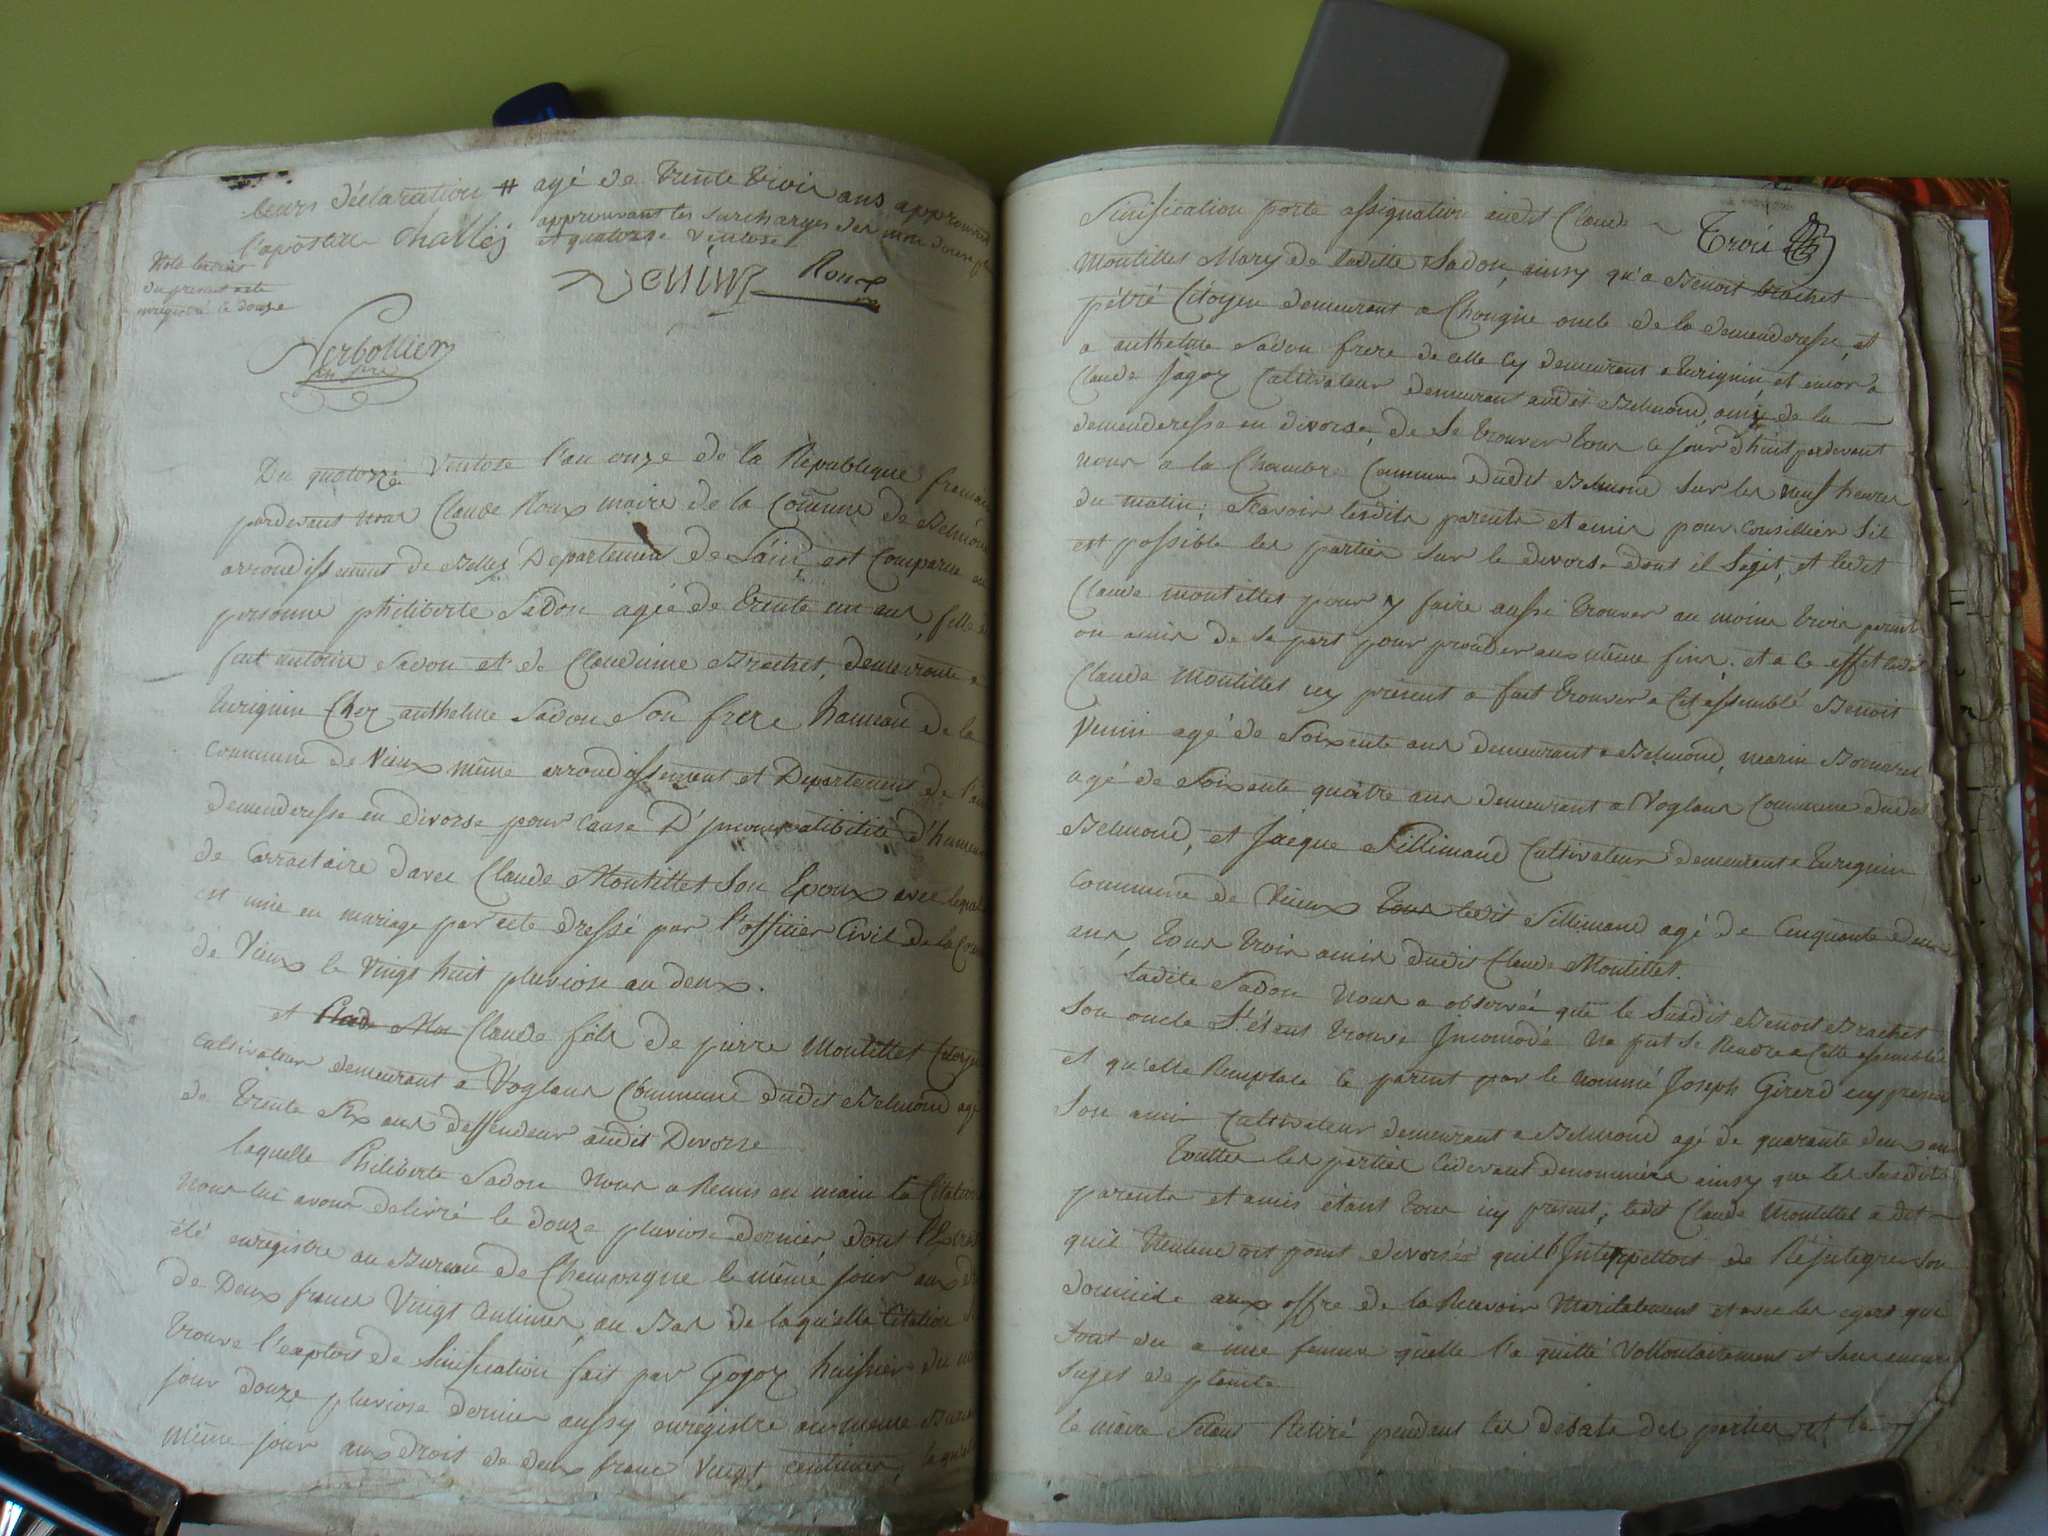 leurs déclaration # agé de trente trois ans approuvant
l'apostille Challej approuvant les surcharges des mots douze
et quatorze ventose
Venin Roux
Nota
du present acte
enregistré le douze
Du quatorze Ventose l'an onze de la République francai
pardevant nous Claude Roux maire de la Commune de Belmond
arrondissement de Belley Departement de Lain, est Comparue en
personne philiberte Sadou agée de trente un ans, fille de
feut antoine Sadou et de Claudine Brachet, demeurante a
turignin Chez anthelme Sadou Son frere hameau de la
Commune de Vieux même arrondissement et Departement de l'ain
demenderesse en divorse pour Cause D'jncompatibilité d'humeur
de Carractaire davec Claude Montillet Son Epoux avec lequel
est unie en mariage par acte dressé par l'officier Civil de la Com
de Vieux le Vingt huit pluviose an deux.
et Claude fils de pierre Montillet Citoyen
Cultivateur demeurant a Voglans Commune dudit Belmond agé
de trente Six ans deffendeur audit Divorse
laquelle Philiberte Sadou Nous a Remis en main la Citation
Nous lui avons delivré le douze pluviose dernier dont
été enregistre au Bureau de Champagne le même jour aux dr
de Deux franc Vingt Cantimes, au Bas de laquelle Citation se
trouve l'exploit de Sinification fait par Gojoz huissier du m
jour douze pluviose dernier aussy enregistre au même Bureau
même jour aux droit de deux franc Vingt centimes, laquelle
Sinification porte assignation audit Claude Trois
Montillet Mary de ladite Sadou, ainsy qu'a Benoit Brachet
pétré Citoyen demeurant a Chongne oncle de la demenderesse, et
a anthelme Sadou frere de celle cy demeurant a turignin, et encor a
Claude Jagoz Cultivateur demeurant audit Belmond, amis de la
demenderesse en divorse, de Se trouver tous ce jour d'huit pardevant
nous a la Chambre Commune dudit Belmond Sur les neuf heures
du matin; Scavoir lesdits parents et amis pour Consillier Sil
est possible les parties Sur le divorse dont il Sagit, et ledit
Claude montillet pour y faire aussi trouver au moins trois parents
ou amis de Sa part pour proceder aux même fins. et a ce effet ledit
Claude Montillet icy présent a fait trouver a Cet assemblé Benoit
Venin agé de Soixente ans demeurant a Belmond, marin Bornarel
agé de Soixente quatre ans demeurant a Voglans Commune dudit
Belmond, et Jacque Sillimand Cultivateur demeurant a turignin
Commune de Vieux tous ledit Sillimand agé de Cinquante deux
ans, tous trois amis dudit Claude Montillet.
Ladite Sadou Nous a observée que le Susdit Benoit Brachet
Son oncle S'étant trouvé Jncomodé Ne put Se Rendre a Cette assemblée
et qu'elle Remplace Ce parent par le nommé Joseph Girerd icy present
Son ami Cultivateur demeurant a Belmond agé de quarante deux ans
Touttes les parties cidevant denommées ainsy que les Susdits
parents et amis étant tous icy present, ledit Claude Montillet a dit
quil Neulene ort point divorsée quil l'Interpelloit de Réjntegrer Son
domicile aux offre de la Recevoir Maritalement et avec les egars qui
Sont du a une femme quelle l'a quitté Vollontairement et Sans aucun
Sujet de plainte
le maire Setant Retiré pendant les debats des parties et la